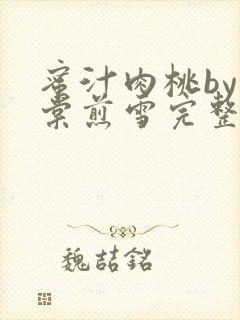 蜜汁肉桃by
棠煎雪完整
魏喆銘